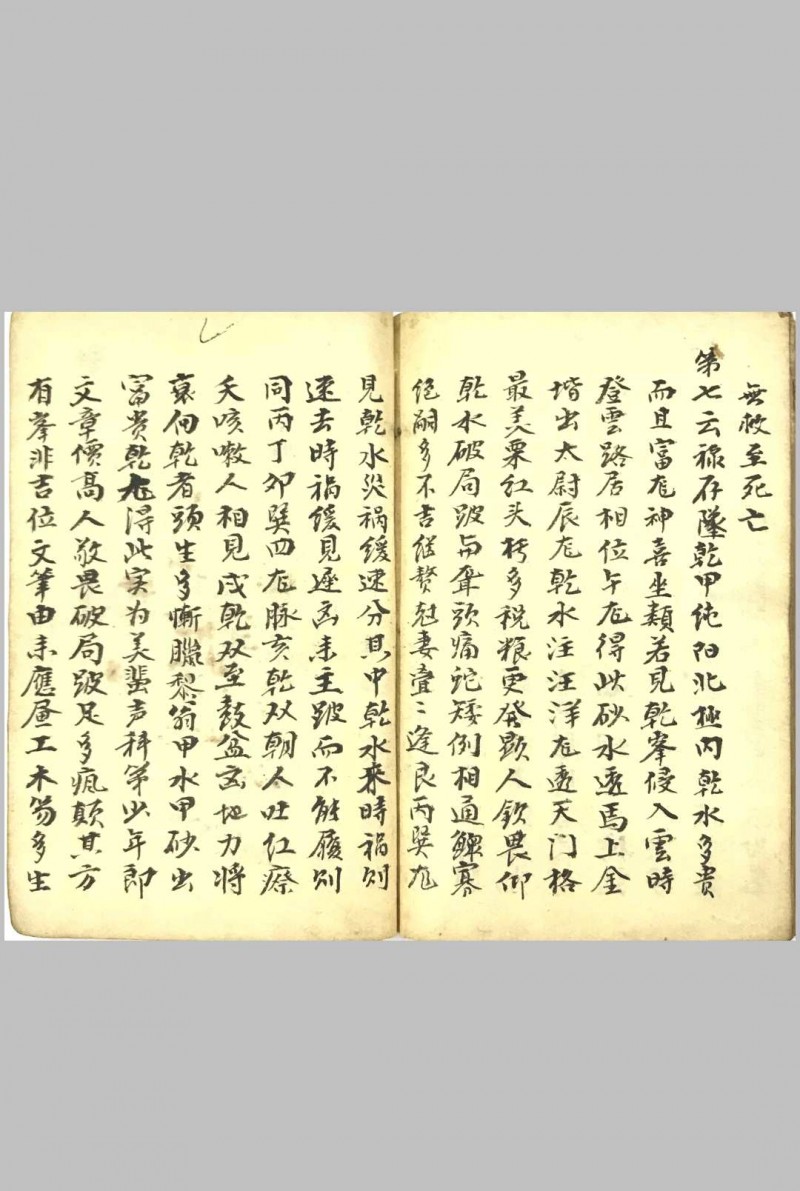 無救至死亡
第七云祿存墜乾甲纯阳北極内乾水多貴
而且富尨神喜坐類若見乾峯侵入雲時
登雲路居相位午尨得此砂水透馬上金
堦出太尉辰尨乾水注汪洋尨透天门格
最美粟红头朽多税粮更發顕人欽畏仰
乾水破局跛与聋头痛矮例相通鰥寡
絕嗣多不吉继贅尅妻壹〻逢艮丙巽尨
見乾水災祸缓速分其中乾水来時祸则
速去時祸缓見遲凶未主跛而不能履则
同丙丁卯巽四尨脉亥乾双朝人吐红瘵
夭咳嗽人相見戌乾双至鼓盆凶地力將
衰何乾者頭生多慚臘黎翁甲水甲砂出
富贵乾尨得此实为美蜚声科第少年郎
文章價高人敬畏破局跛足多疯颠其方
有峯非吉位文筆由未應屠工木笏多生